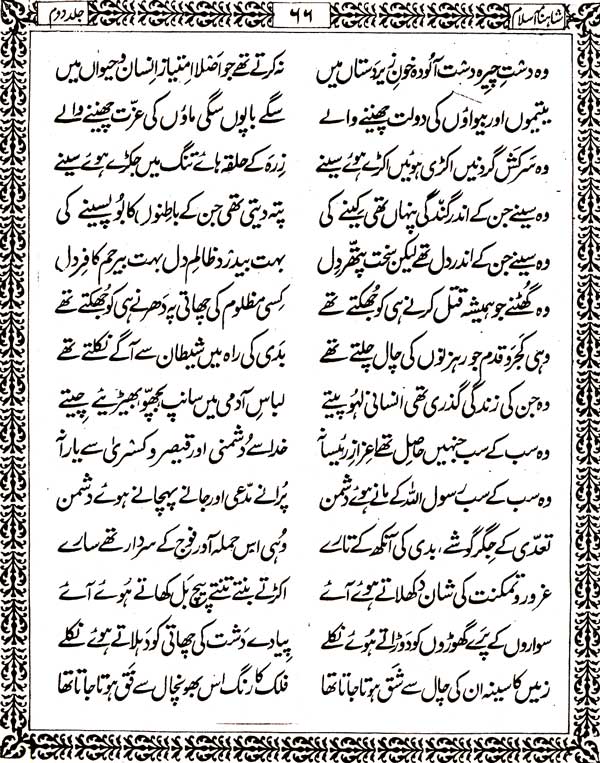 شاہنامۂ اسلام ۶۶ جلد دوم
وہ دشتِ چیرہ دشت آلودہ خونِ زیر دستاں میں نہ کرتے تھے جو اصلا امتیاز انسان و حیواں میں
یتیموں اور بیواؤں کی دولت چھیننے والے سگے باپوں سگی ماؤں کی عزّت چھیننے والے
وہ سرکش گردنیں اکڑی ہوئیں اکڑے ہوئے سینے زرہ کے حلقہ ہائے تنگ میں جکڑے ہوئے سینے
وہ سینے جن کے اندر گندگی پنہاں تھی کینے کی پتہ دیتی تھی جن کے باطنوں کا بُو پسینے کی
وہ سینے جن کے اندر دل تھے لیکن سخت پتھّر دل بہت بیدرد ظالم دل بہت بیرحم کافر دل
وہ گھٹنے جو ہمیشہ قتل کرنے ہی کو جھکتے تھے کسی مظلوم کی چھاتی پہ دھرنے ہی کو جھکتے تھے
وہی کجرو قدم جو رہزنوں کی چال چلتے تھے بدی کی راہ میں شیطان سے آگے نکلتے تھے
وہ جن کی زندگی گذری تھی انسانی لہو پیتے لباسِ آدمی میں سانپ بچھّو بھیڑیئے چیتے
وہ سب کے سب جنہیں حاصل تھا اعزازِ رئیسانہ خدا سے دُشمنی اور قیصر و کسریٰ سے یارانہ
وہ سب کے سب رسول اللہ کے مانے ہوئے دشمن پُرانے مدعی اور جانے پہچانے ہوئے دشمن
تعدّی کے جگر گوشے، بدی کی آنکھ کے تارے وہی اس حملہ آور فوج کے سردار تھے سارے
غرور و تمکنت کی شان دکھلاتے ہوئے آئے اکڑتے بنتے تنتے پیچ بل کھاتے ہوئے آئے
سواروں کے پرے گھوڑوں کو دوڑاتے ہوئے نکلے پیادے دشت کی چھاتی کو دہلاتے ہوئے نکلے
زمیں کا سینہ ان کی چال سے شق ہوتا جاتا تھا فلک کا رنگ اس بھونچال سے فق ہوتا جاتا تھا